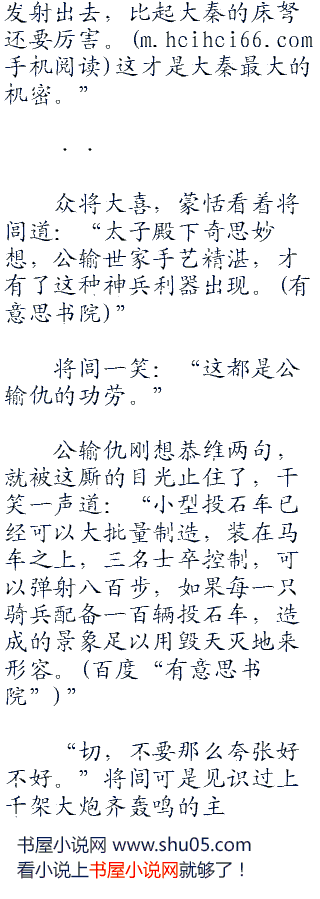 发射出去，比起大秦的床弩
还要厉害。(m.hcihci66.com
手机阅读)这才是大秦最大的
机密。”
．．
众将大喜，蒙恬看着将
闾道：“太子殿下奇思妙
想，公输世家手艺精湛，才
有了这种神兵利器出现。(有
意思书院)”
将闾一笑：“这都是公
输仇的功劳。”
公输仇刚想恭维两句，
就被这厮的目光止住了，干
笑一声道：“小型投石车已
经可以大批量制造，装在马
车之上，三名士卒控制，可
以弹射八百步，如果每一只
骑兵配备一百辆投石车，造
成的景象足以用毁天灭地来
形容。(百度“有意思书
院”)”
“切，不要那么夸张好
不好。”将闾可是见识过上
千架大炮齐轰鸣的主
书屋小说网 www.shu05.com
看小说上书屋小说网就够了！